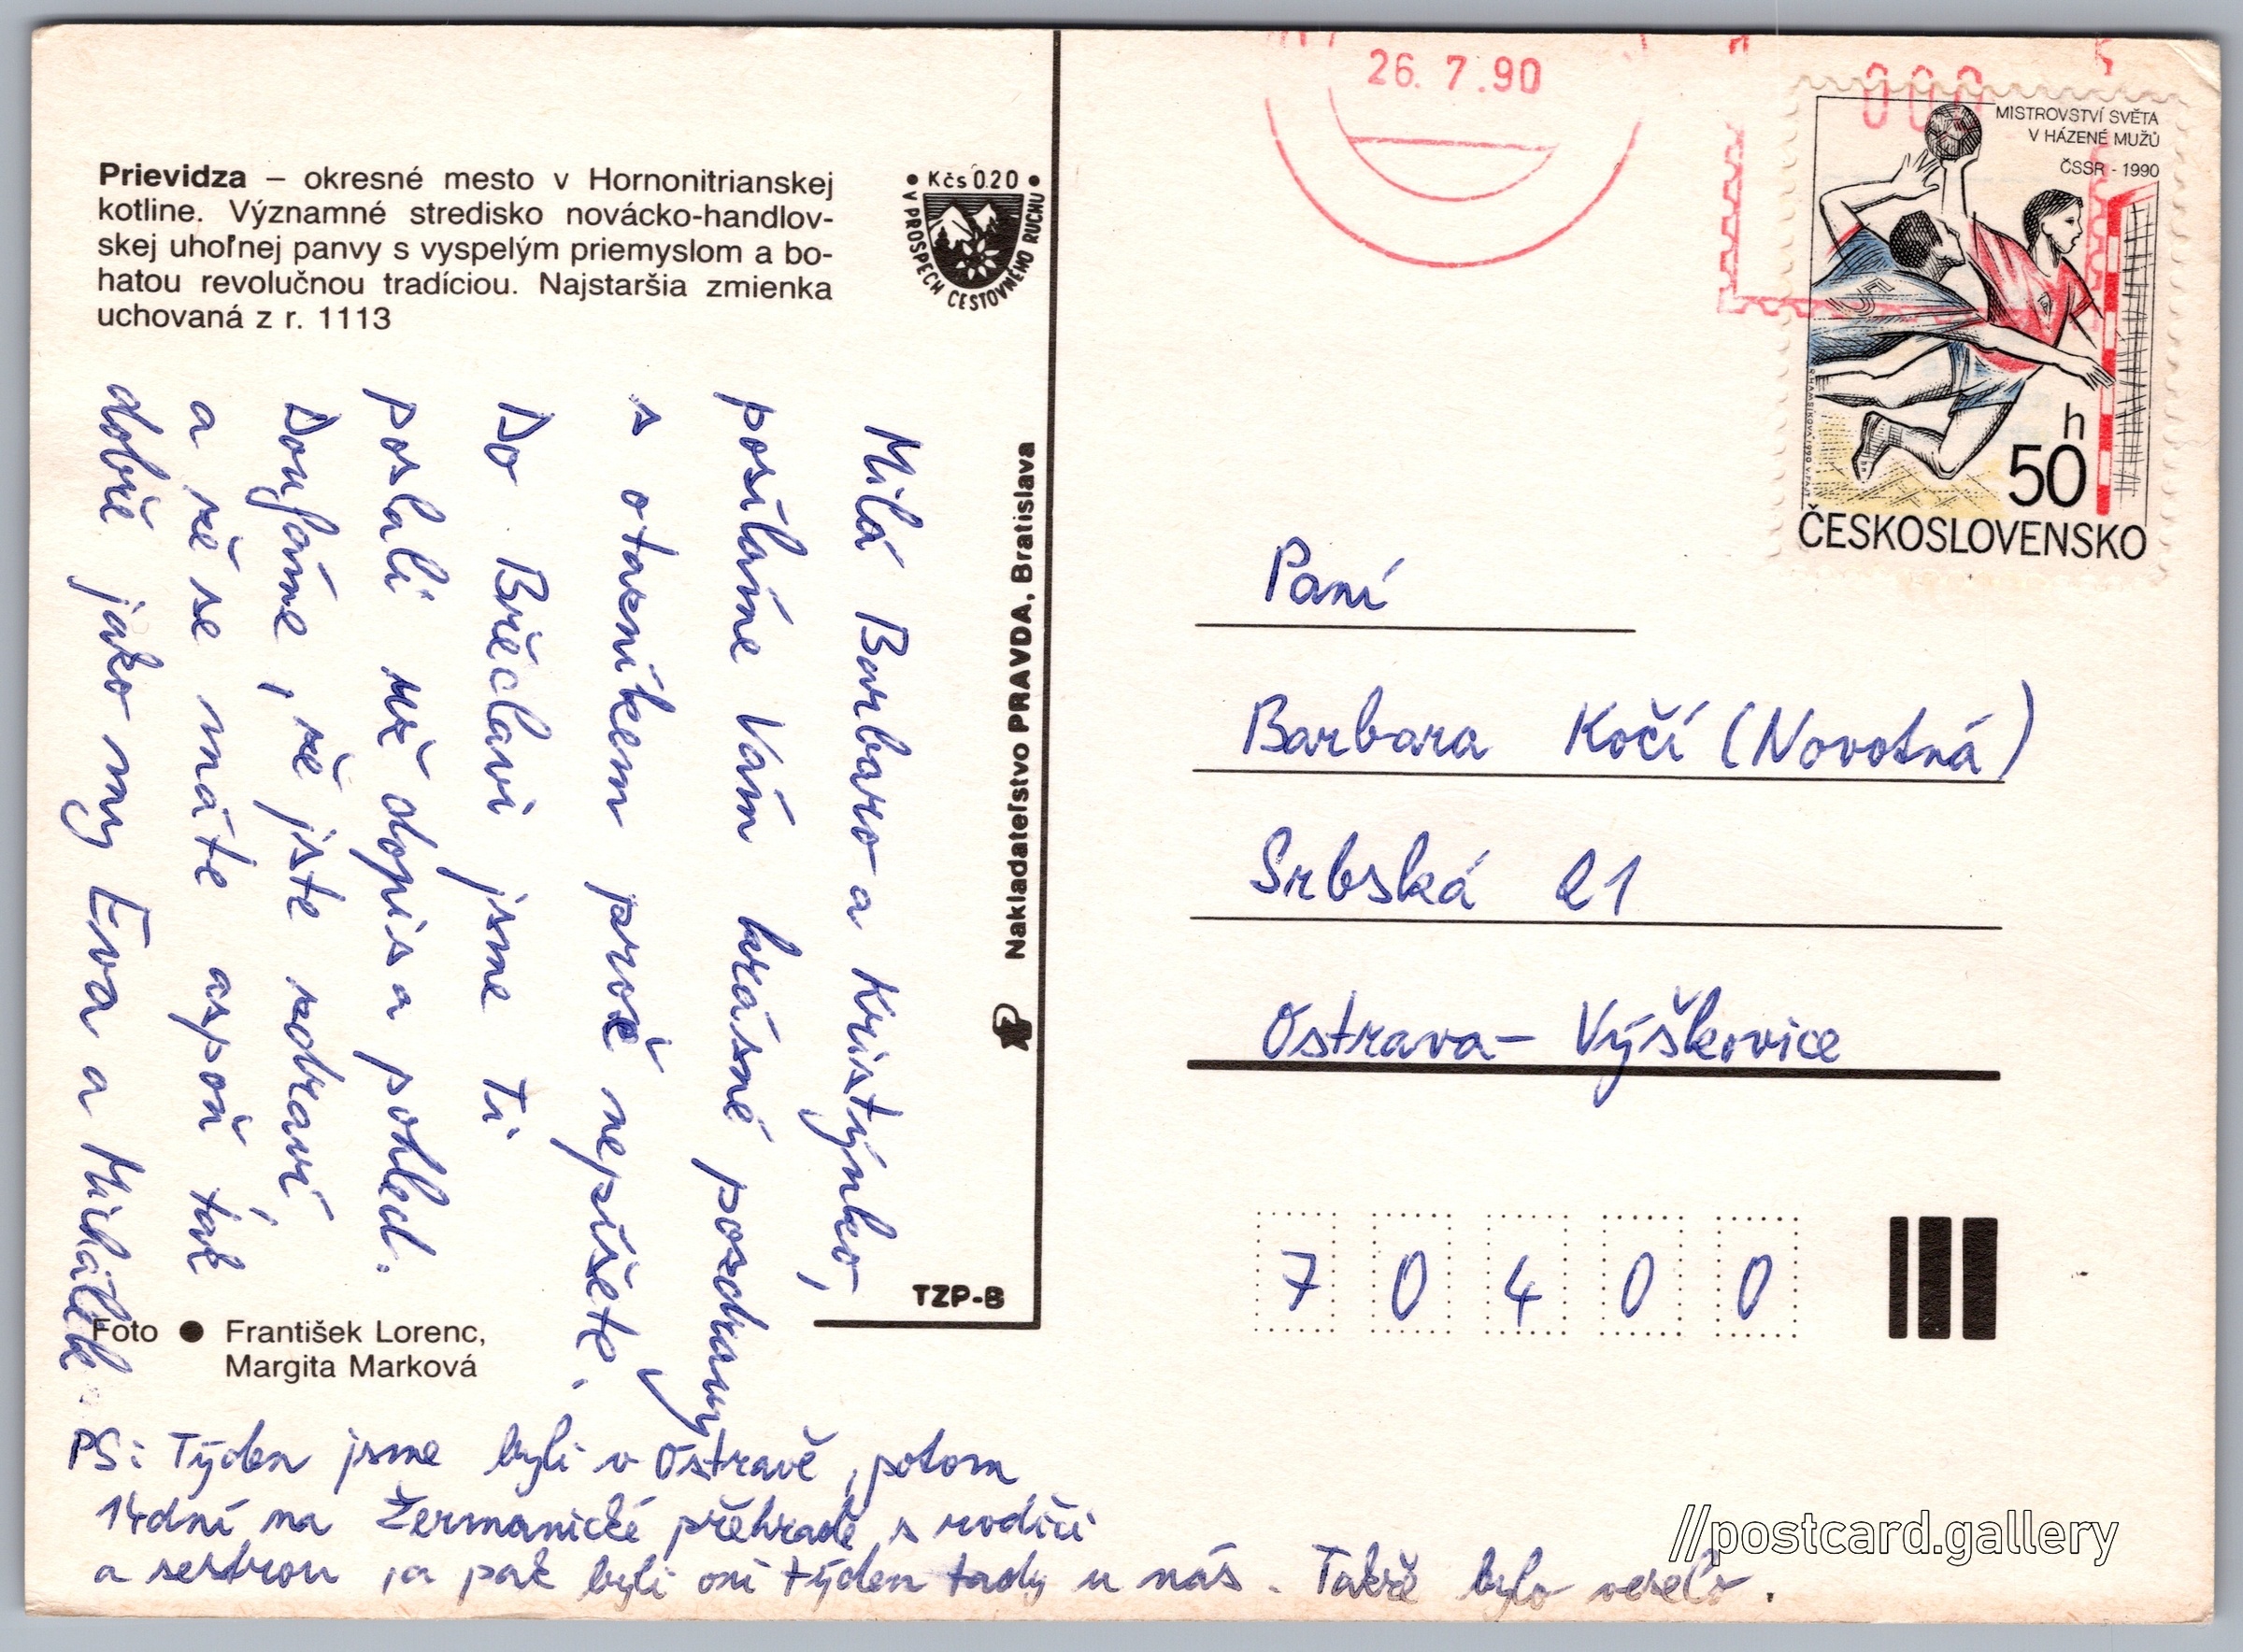 Prievidza – okresné mesto v Hornonitrianskej
kotline. Významné stredisko novácko-handlov-
skej uhoľnej panvy s vyspelým priemyslom a bo-
hatou revolučnou tradíciou. Najstaršia zmienka
uchovaná z r. 1113
• Kčs 0.20 •
V PROSPECH CESTOVNÉHO RUCHU
Milá Barbaro a Kristýnko,
posíláme Vám krásné pozdravy
s otazníkem proč nepíšete.
Do Břeclavi jsme Ti
poslali už dopis a pohled.
Doufáme, že jste zdraví,
a že se máte aspoň tak
dobře jako my Eva a Michálek
PS: Týden jsme byli v Ostravě, potom
14dní na Žermanické přehradě s rodiči
a sestrou, a pak byli oni týden tady u nás. Takže bylo veselo.
Foto ● František Lorenc,
Margita Marková
TZP-B
Nakladateľstvo PRAVDA, Bratislava
26. 7. 90
000
MISTROVSTVÍ SVĚTA
V HÁZENÉ MUŽŮ
ČSSR - 1990
50 h
ČESKOSLOVENSKO
Paní
Barbara Kočí (Novotná)
Srbská 21
Ostrava - Výškovice
7 0 4 0 0
//postcard.gallery